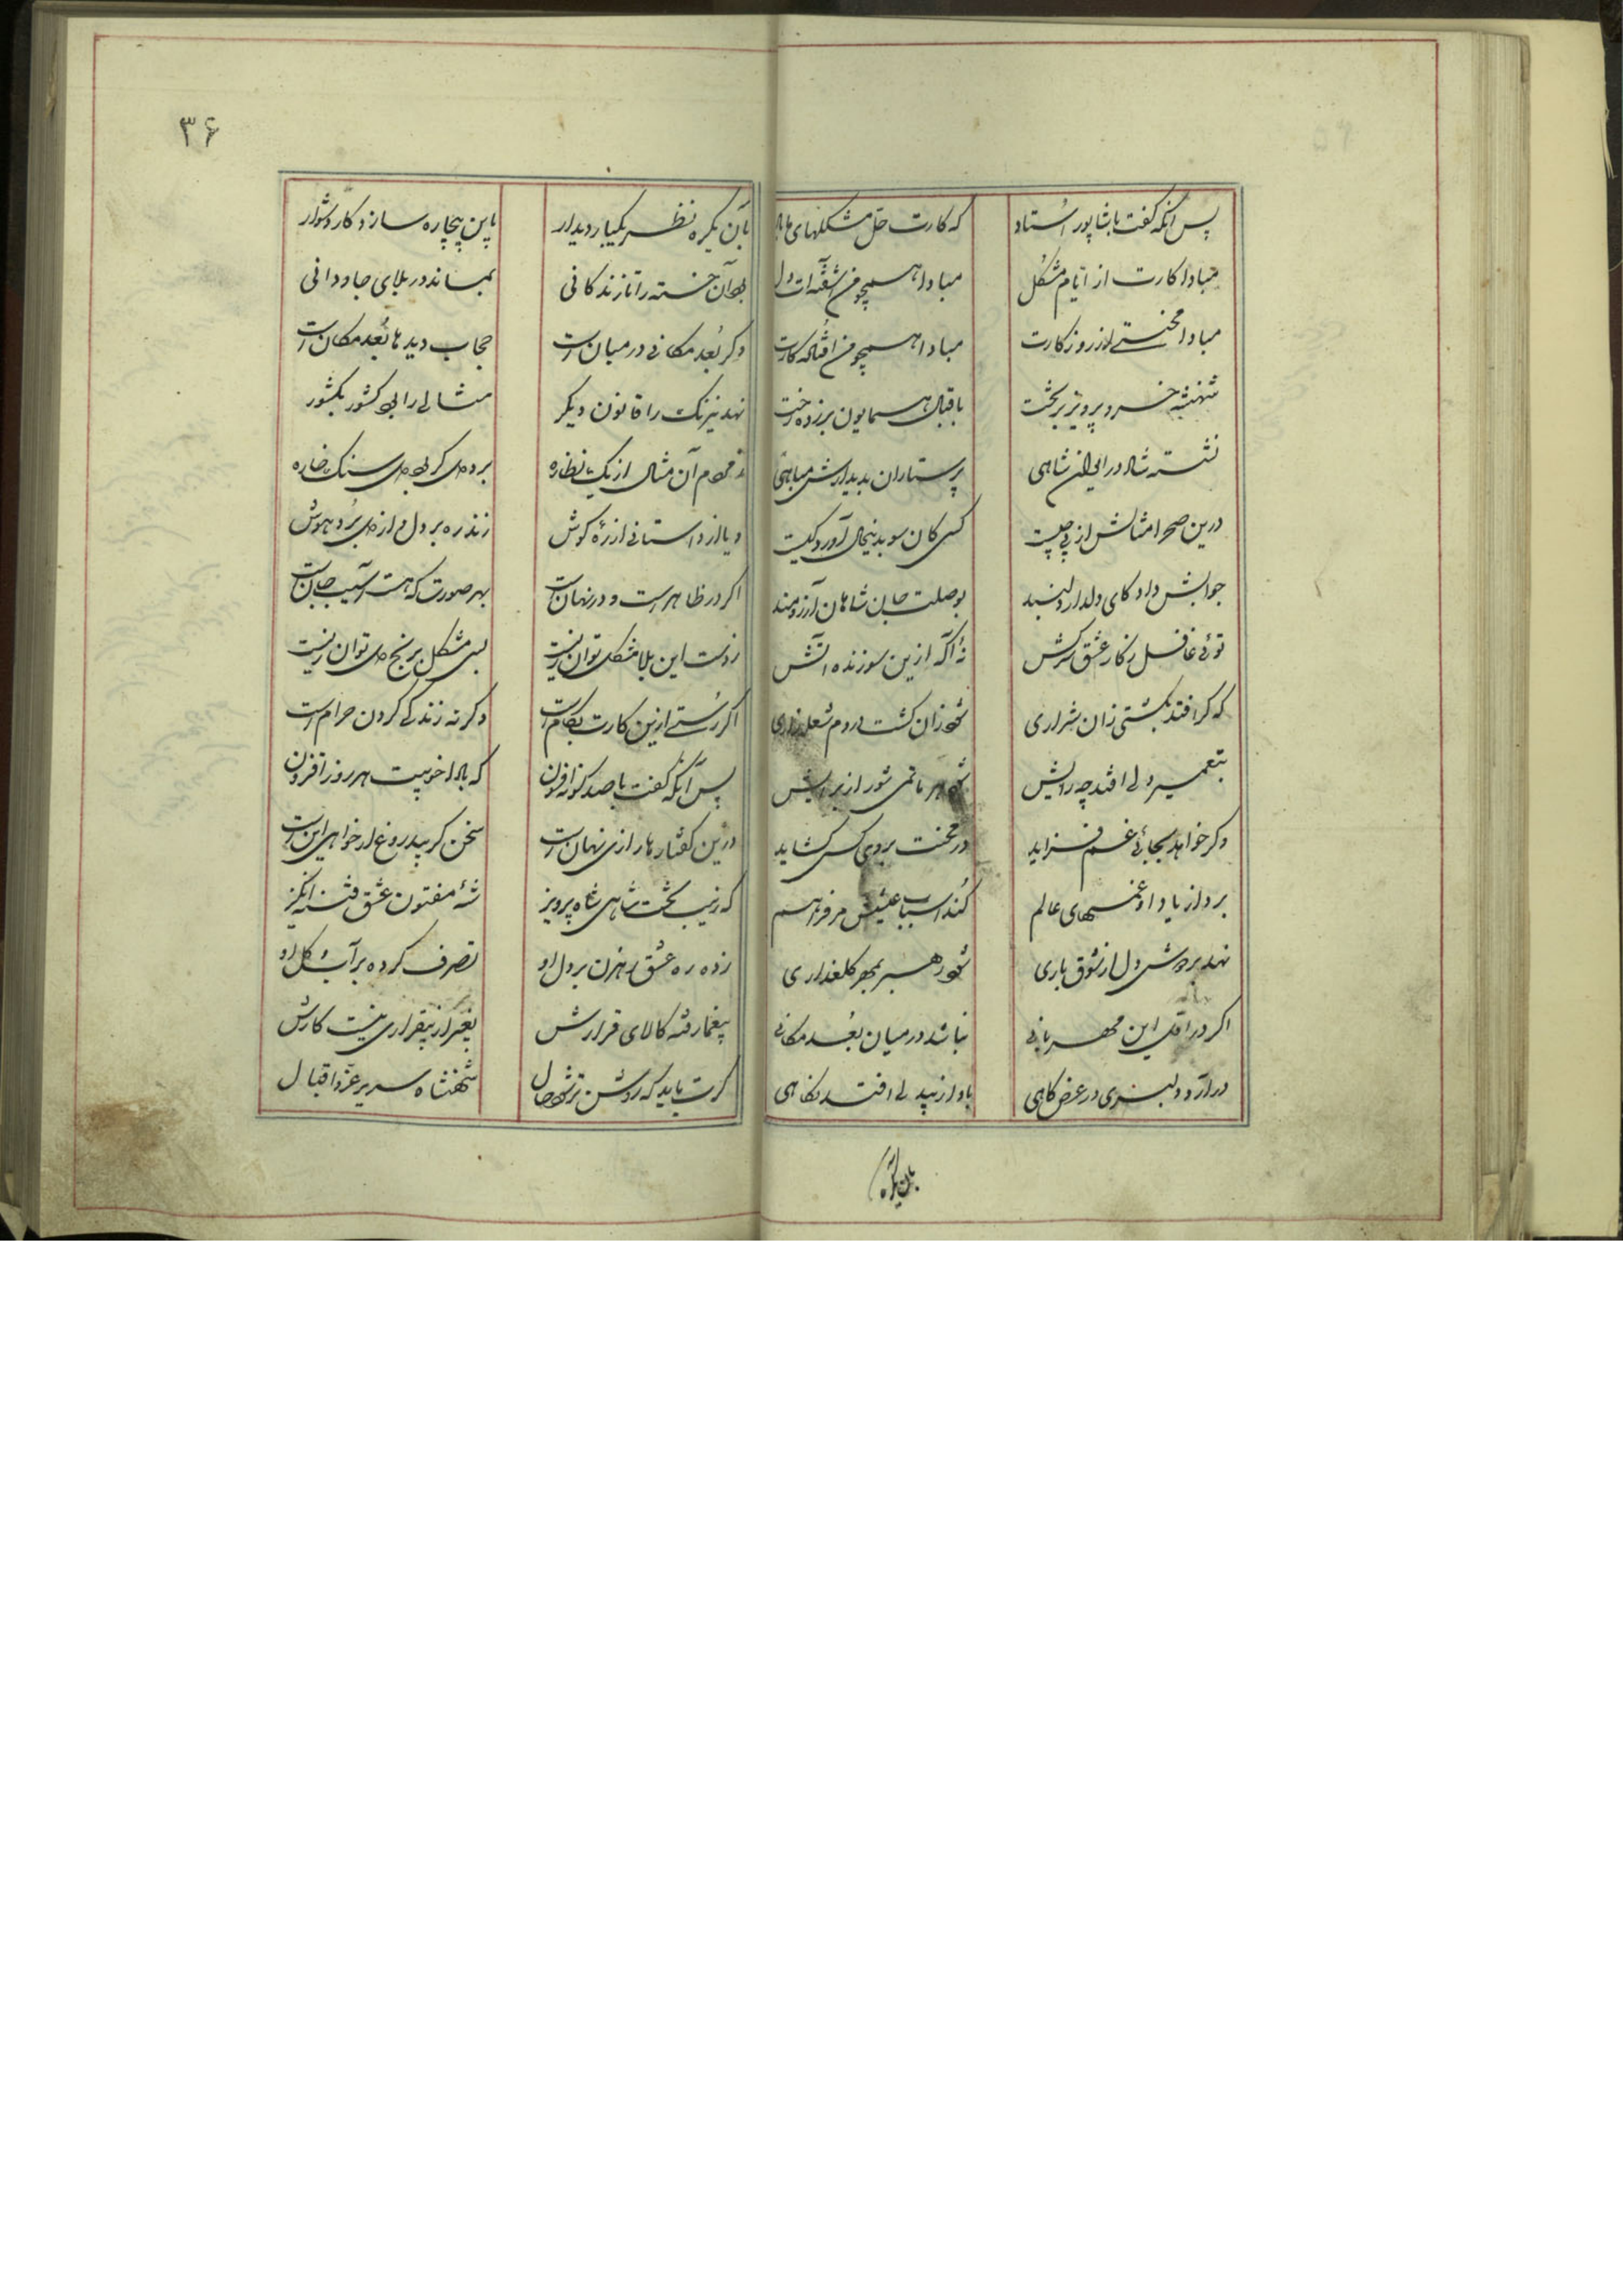 پس آنکه گفت با شاپور استاد که کارت حل مشکلهای ما باد
مبادا کارت از ایام مشکل مبادا همچو من آشفته‌ات دل
مبادا محنتی از روزکارت مبادا همچو من افتاده کارت
شهنشه خسرو پرویز بر تخت باقبال همایون برزده رخت
نشسته شاد در ایوان شاهی پرستاران بدیدارش مباهی
درین صحرا مثالش از پی چیست کسی کان سو بدینجا آورد کیست
جوابش داد کای دلدار دلبند بوصلت جان شاهان آرزومند
توئی غافل ز کار عشق سرکش نهٔ آکه ازین سوزنده آتش
که کر افتد بکشتی زان شراری شود زان کشت مردم شعله زاری
بتعمیر دلی افتد چه رایش شود هر ماتمی شور از برایش
وکر خواهد بجائی غم فزاید در محنت بروی کس کشاید
برد از یاد او غمهای عالم کند اسباب عیشش مر فراهم
نهد بر دوش دل از شوق باری شود رهبر بمهر کلعذاری
اکر در اقلیم این مهربانی نباشد در میان بعد مکانی
در آرد دلبری در عرض کاهی باو از بیدلی افتد نکاهی
بآن یکره
۳۶
بآن یکره نظر یکبار دیدار باین بیچاره سازد کار دشوار
بود آن خسته را تا زندکانی بماند در بلای جاودانی
وکر بعد مکانی در میان است حجاب دیدها بعد مکان است
نهد نیرنک را قانون دیکر مثالی را برد کشور بکشور
نه فهم آن مثال از یک نظاره برد دل کر بود دل سنک خاره
و یا از داستانی از ره کوش زند ره بر دل و از دل برد هوش
اکر در ظاهر است و در نهان است بهر صورت که هست آسیب جان است
ز دست این بلا مشکل توان زیست بسی مشکل برنج دل توان زیست
اکر رستی ازین کارت بکام است وکرنه زندکی کردن حرام است
پس آنکه کفت با صد کونه افسون که بادا خوبیت هر روز افزون
درین کفتارها رازی نهان است سخن کر بیدروغ از خواهی این است
که زیب تخت شاهی شاه پرویز شه مفتون عشق فتنه انکیز
زده ره عشق رهزن بر دل او تصرف کرده بر آب و کل او
بیغما رفته کالای قرارش بغیر از بیقراری نیست کارش
کرت باید که روشن تر شود حال شهنشاه سریر عز و اقبال